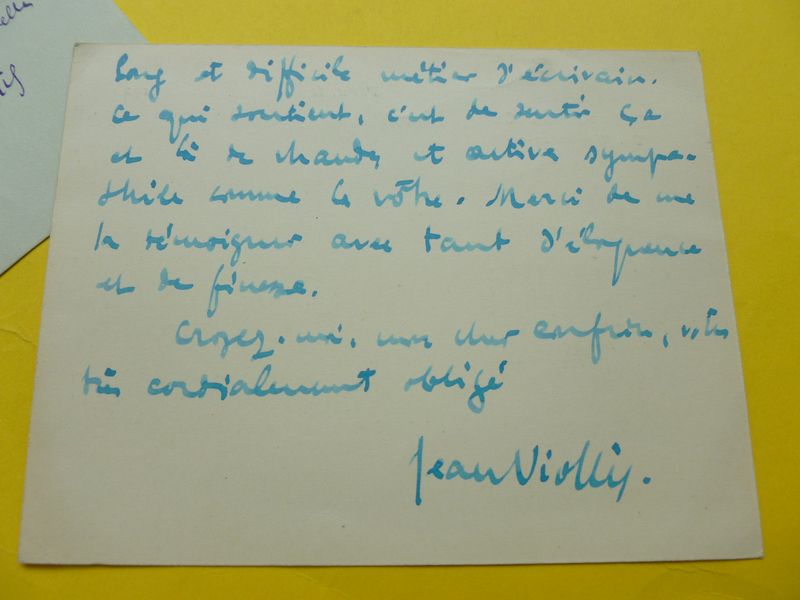 elle
long et difficile métier d'écrivain.
Ce qui soutient, c'est de sentir ça
et là de chaudes et actives sympa-
thies comme la vôtre. Merci de me
la témoigner avec tant d'éloquence
et de finesse.
Croyez-moi, mon cher confrère, votre
très cordialement obligé
Jean Viollis.